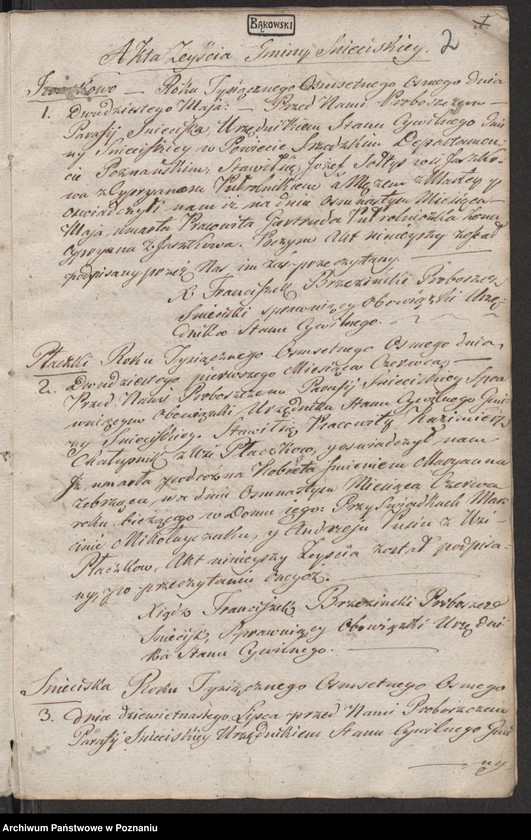 BĄKOWSKI
1.
2
Akta Zeyścia Gminy Snieciskiey.
Roku Tysiącznego Osmsetnego Osmego dnia
1. Dwudziestego Maja: Przed Nami Proboszczem
Parafij Snieciska Urzędnikiem Stanu Cywilnego Gmi
ny Snieciskiey w Powiecie Szredzkim Departamen
cie Poznanskim, Stawił się Jozef Sołtys wsi Jaszko
wa z Cypryanem a Mężem Zmarłey y
oswiadczyli nam iż na dniu osmnastym Miesiąca
Maja umarła Pracowita Gertruda żona
Cypryana z Jaszkowa. Poczym Akt ninieyszy został
podpisany przez Nas im zas przeczytany.
X Franciszek Brzezinski Proboszcz
Sniecki sprawuiący Obowiązki Urzę
dnika Stanu Cywilnego.
Płaczki Roku Tysiącznego Osmsetnego Osmego dnia
2. Dwudziestego pierwszego Miesiąca Czerwca
Przed Nami Proboszczem Parafij Snieciskiey Spra
wuiącym Obowiązki Urzędnika Stanu Cywilnego Gmi
ny Snieciskiey. Stawił się Pracowity Kazimierz
Chałupnik z Wsi Płaczkow, y oswiadczył nam
Iż umarła podrożna Kobieta Imieniem Maryanna
żebrząca, w dniu Osmnastym Miesiąca Czerwca
roku bieżącego w Domu iego: Przy Swiadkach Mar
cinie Mikołayczaku, y Andrzeju z Wsi
Płaczkow, Akt ninieyszy Zeyscia został podpisa
ny, po przeczytaniu onegoż.
Xiądz Franciszek Brzezinski Proboszcz
Sniecisk, Sprawuiący Obowiązki Urzędni
ka Stanu Cywilnego.
Snieciska Roku Tysiącznego Osmsetnego Osmego
3. dnia dziewietnastego Lipca przed Nami Proboszczem
Parafij Snieciskiey Urzędnikiem Stanu Cywilnego Gmi
ny
Archiwum Państwowe w Poznaniu
szukajwarchiwach.gov.pl